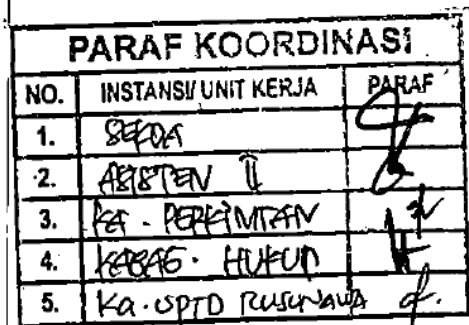 PARAF KOORDINASI
NO. INSTANSI/ UNIT KERJA PARAF
1. SEKDA
2. ASISTEN II
3. KA - PERKIMTAN
4. KABAG. HUKUM
5. Ka. UPTD RUSUNAWA